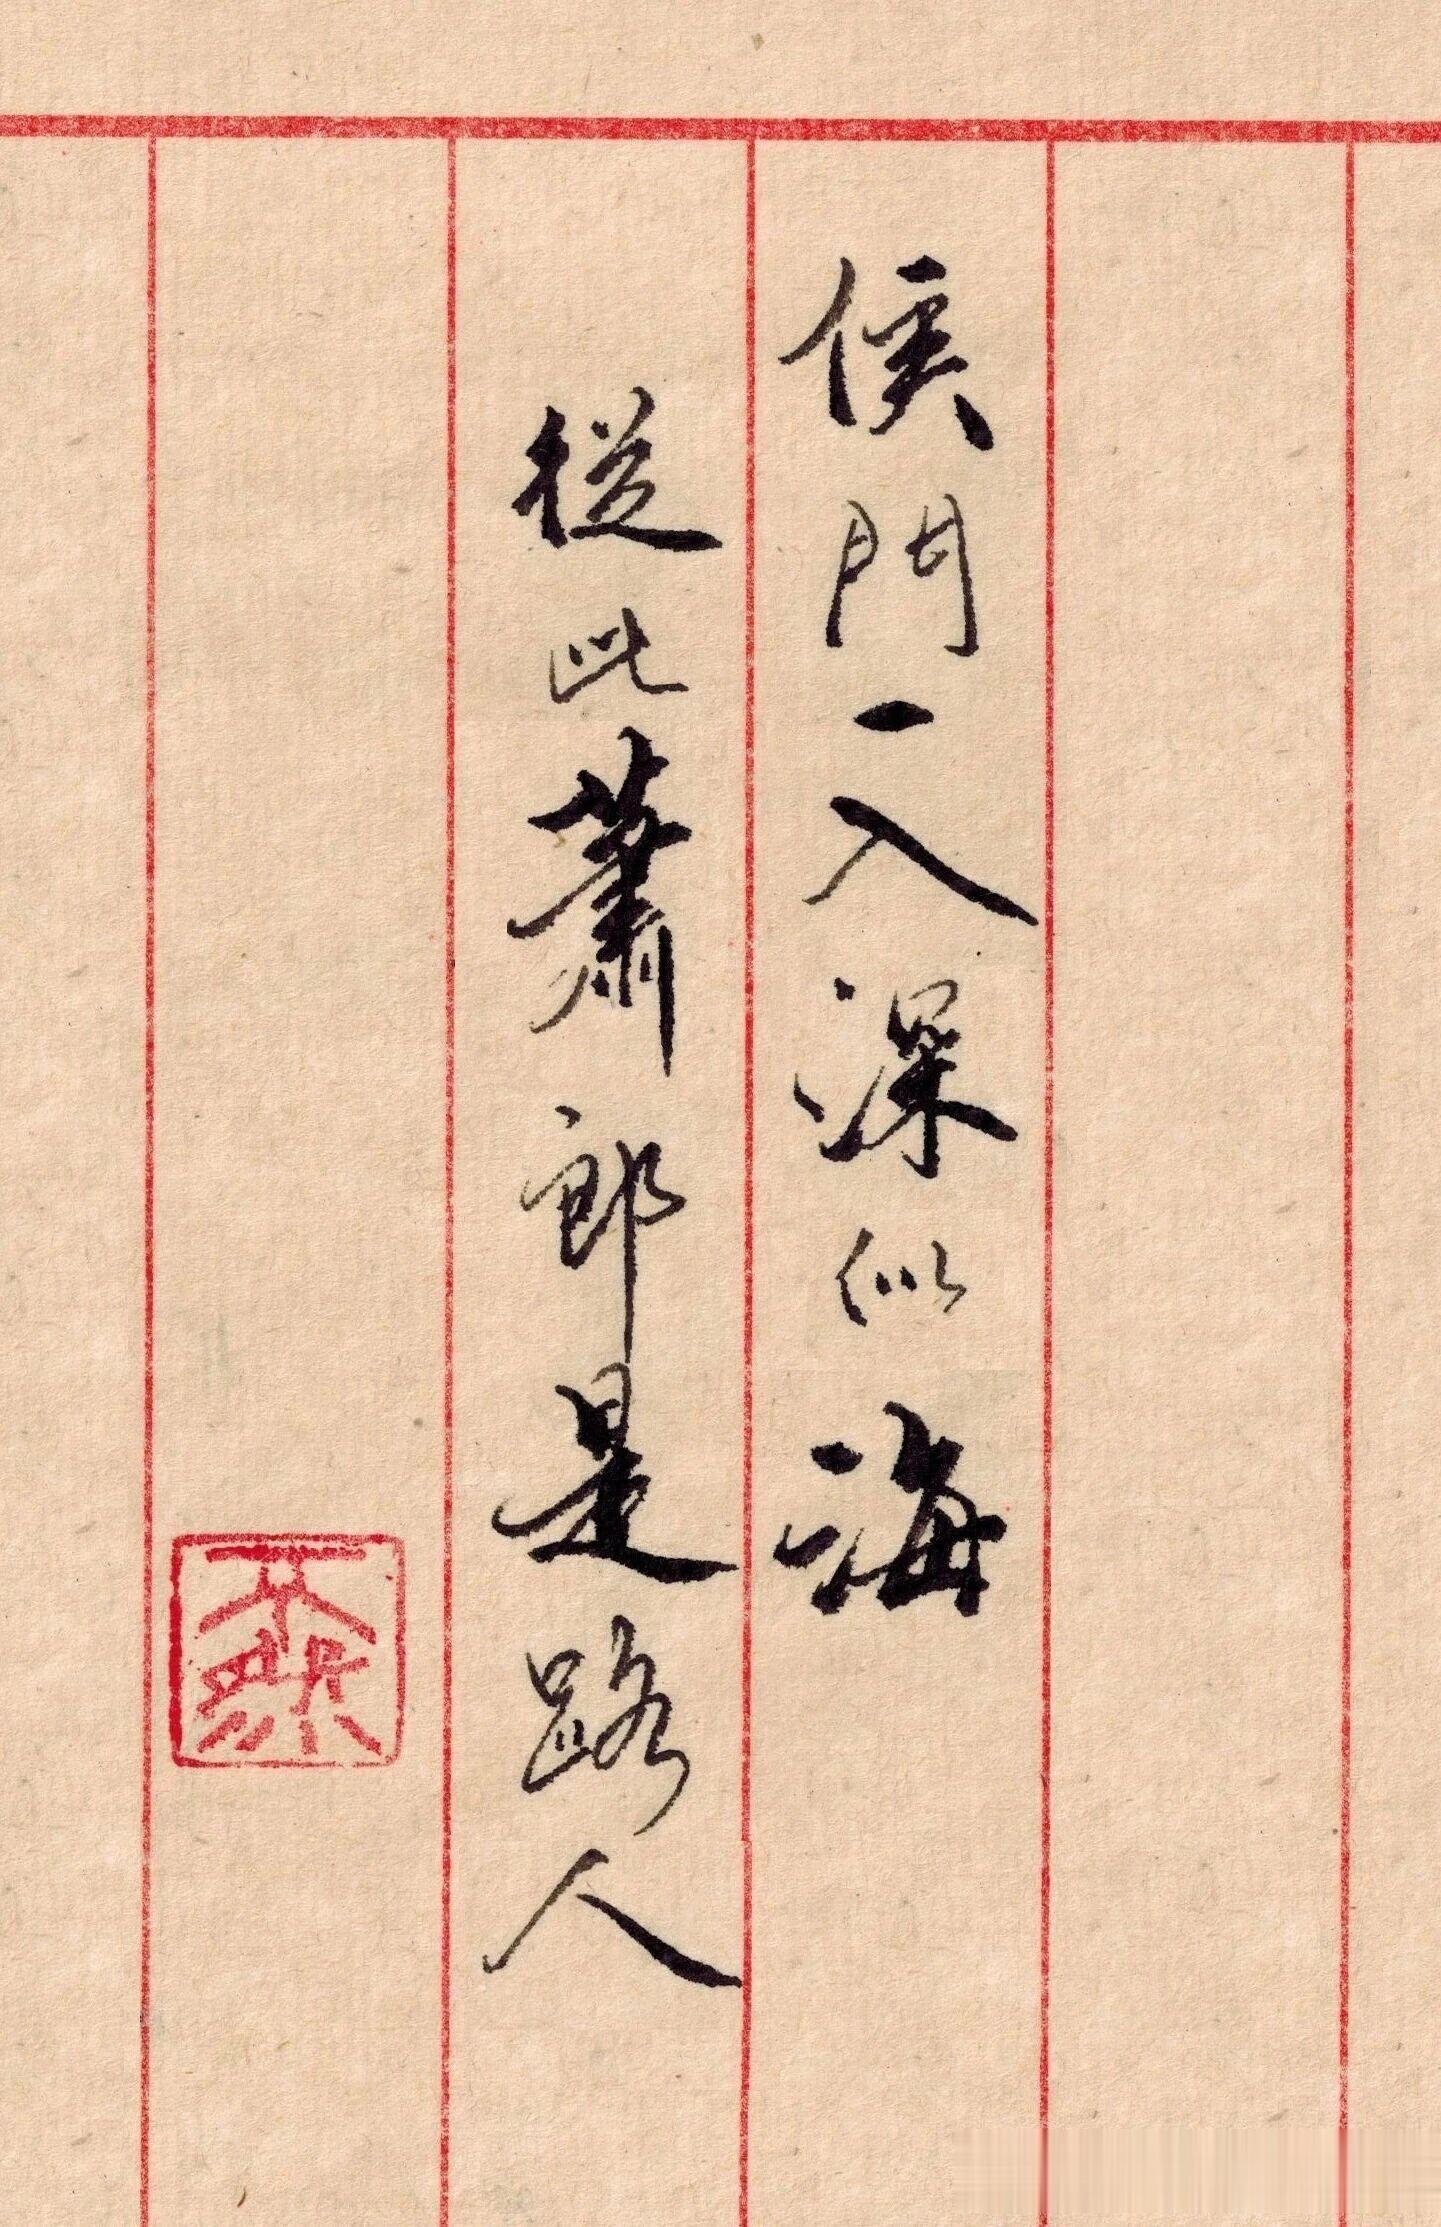 侯門一入深似海
從此蕭郎是路人